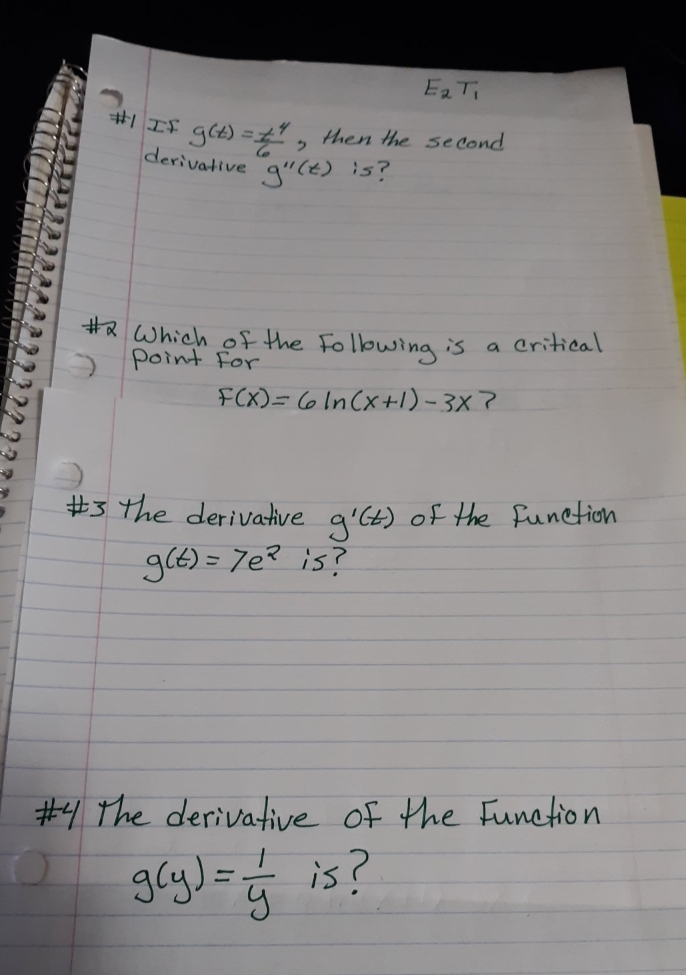 E2 T1
#1 If g(t) = t⁴/6, then the second
derivative g''(t) is?
#2 Which of the following is a critical
point for
F(x) = 6 ln(x+1) - 3x?
#3 The derivative g'(t) of the function
g(t) = 7e² is?
#4 The derivative of the function
g(y) = 1/y is?